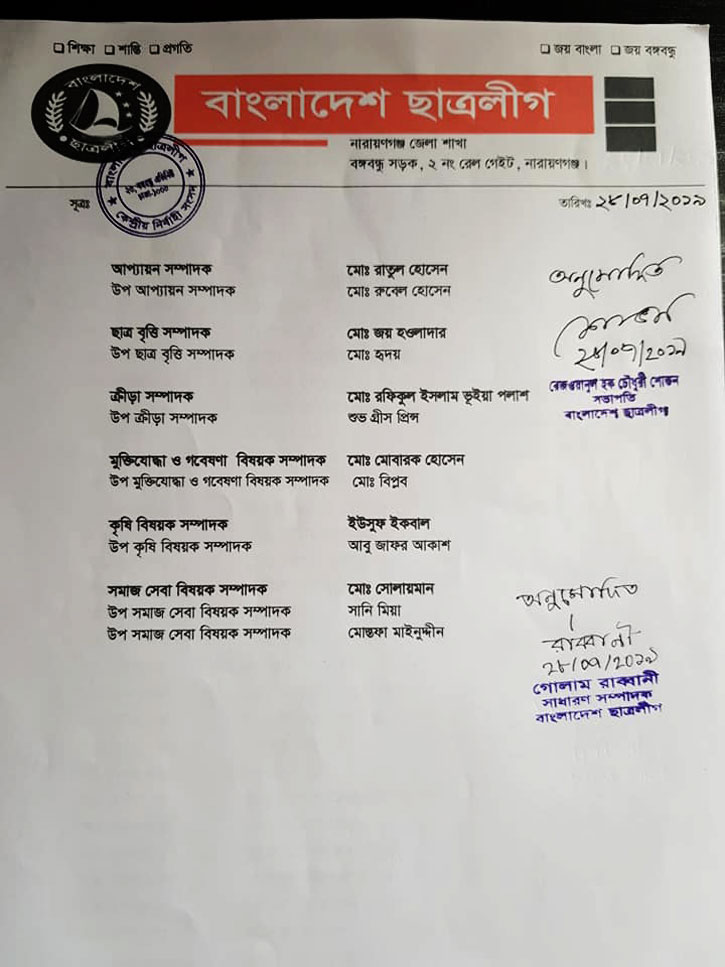 শিক্ষা শান্তি প্রগতি
জয় বাংলা জয় বঙ্গবন্ধু
বাংলাদেশ
ছাত্রলীগ
বাংলাদেশ ছাত্রলীগ
নারায়ণগঞ্জ জেলা শাখা
বঙ্গবন্ধু সড়ক, ২ নং রেল গেইট, নারায়ণগঞ্জ।
ছাত্রলীগ
কেন্দ্রীয় নির্বাহী সংসদ
সূত্রঃ
তারিখঃ ২৮/০৭/২০১৯
আপ্যায়ন সম্পাদক মোঃ রাতুল হোসেন
উপ আপ্যায়ন সম্পাদক মোঃ রুবেল হোসেন
অনুমোদিত
ছাত্র বৃত্তি সম্পাদক মোঃ জয় হওলাদার
উপ ছাত্র বৃত্তি সম্পাদক মোঃ হৃদয়
২৮/০৭/২০১৯
রেজওয়ানুল হক চৌধুরী শোভন
সভাপতি
বাংলাদেশ ছাত্রলীগ
ক্রীড়া সম্পাদক মোঃ রফিকুল ইসলাম ভূইয়া পলাশ
উপ ক্রীড়া সম্পাদক শুভ গ্রীস প্রিন্স
মুক্তিযোদ্ধা ও গবেষণা বিষয়ক সম্পাদক মোঃ মোবারক হোসেন
উপ মুক্তিযোদ্ধা ও গবেষণা বিষয়ক সম্পাদক মোঃ বিপ্লব
কৃষি বিষয়ক সম্পাদক ইউসুফ ইকবাল
উপ কৃষি বিষয়ক সম্পাদক আবু জাফর আকাশ
সমাজ সেবা বিষয়ক সম্পাদক মোঃ সোলায়মান
উপ সমাজ সেবা বিষয়ক সম্পাদক সানি মিয়া
উপ সমাজ সেবা বিষয়ক সম্পাদক মোস্তফা মাইনুদ্দীন
অনুমোদিত
রাব্বানী
২৮/০৭/২০১৯
গোলাম রাব্বানী
সাধারণ সম্পাদক
বাংলাদেশ ছাত্রলীগ